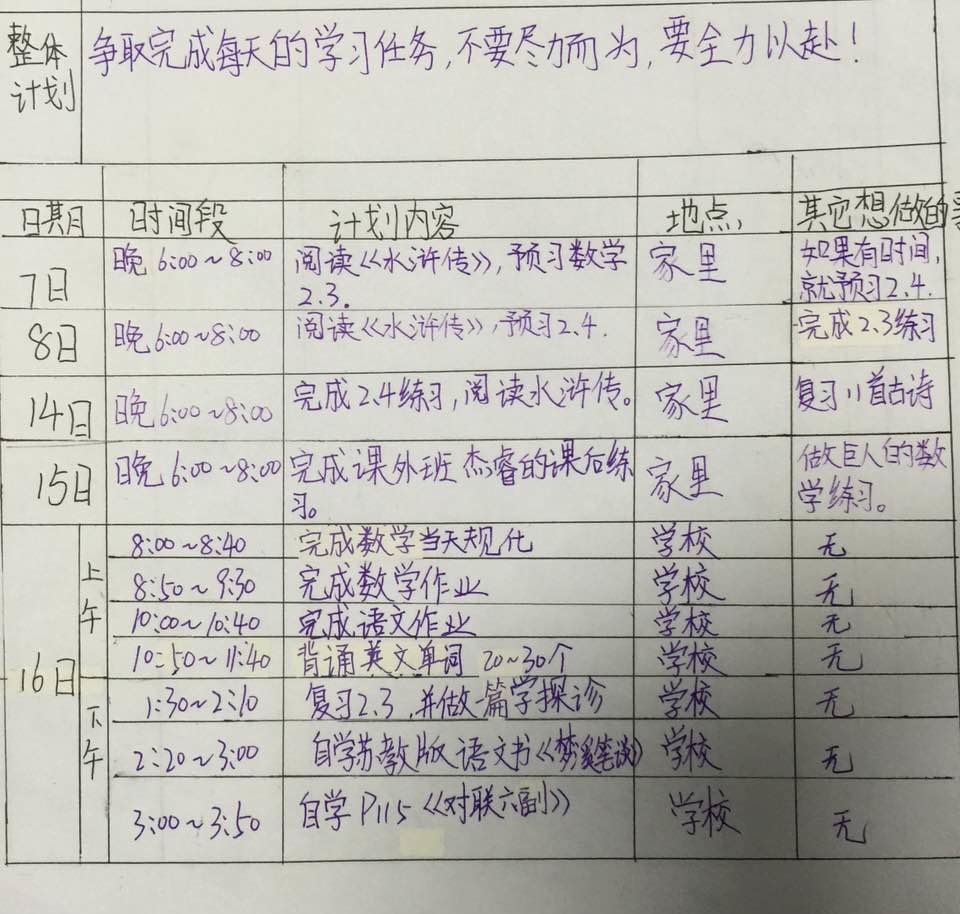 整体计划 争取完成每天的学习任务,不要尽力而为,要全力以赴!
日期 时间段 计划内容 地点 其它想做的
7日 晚6:00~8:00 阅读《水浒传》,预习数学2.3. 家里 如果有时间,就预习2.4.
8日 晚6:00~8:00 阅读《水浒传》,预习2.4. 家里 完成2.3练习
14日 晚6:00~8:00 完成2.4练习,阅读水浒传。 家里 复习11首古诗
15日 晚6:00~8:00 完成课外班杰睿的课后练习。 家里 做巨人的数学练习。
16日 上午 8:00~8:40 完成数学当天规化 学校 无
8:50~9:30 完成数学作业 学校 无
10:00~10:40 完成语文作业 学校 无
10:50~11:40 背诵英文单词 20~30个 学校 无
下午 1:30~2:10 复习2.3,并做一篇学探诊 学校 无
2:20~3:00 自学苏教版语文书《梦溪笔谈》 学校 无
3:00~3:50 自学P115《对联六副》 学校 无